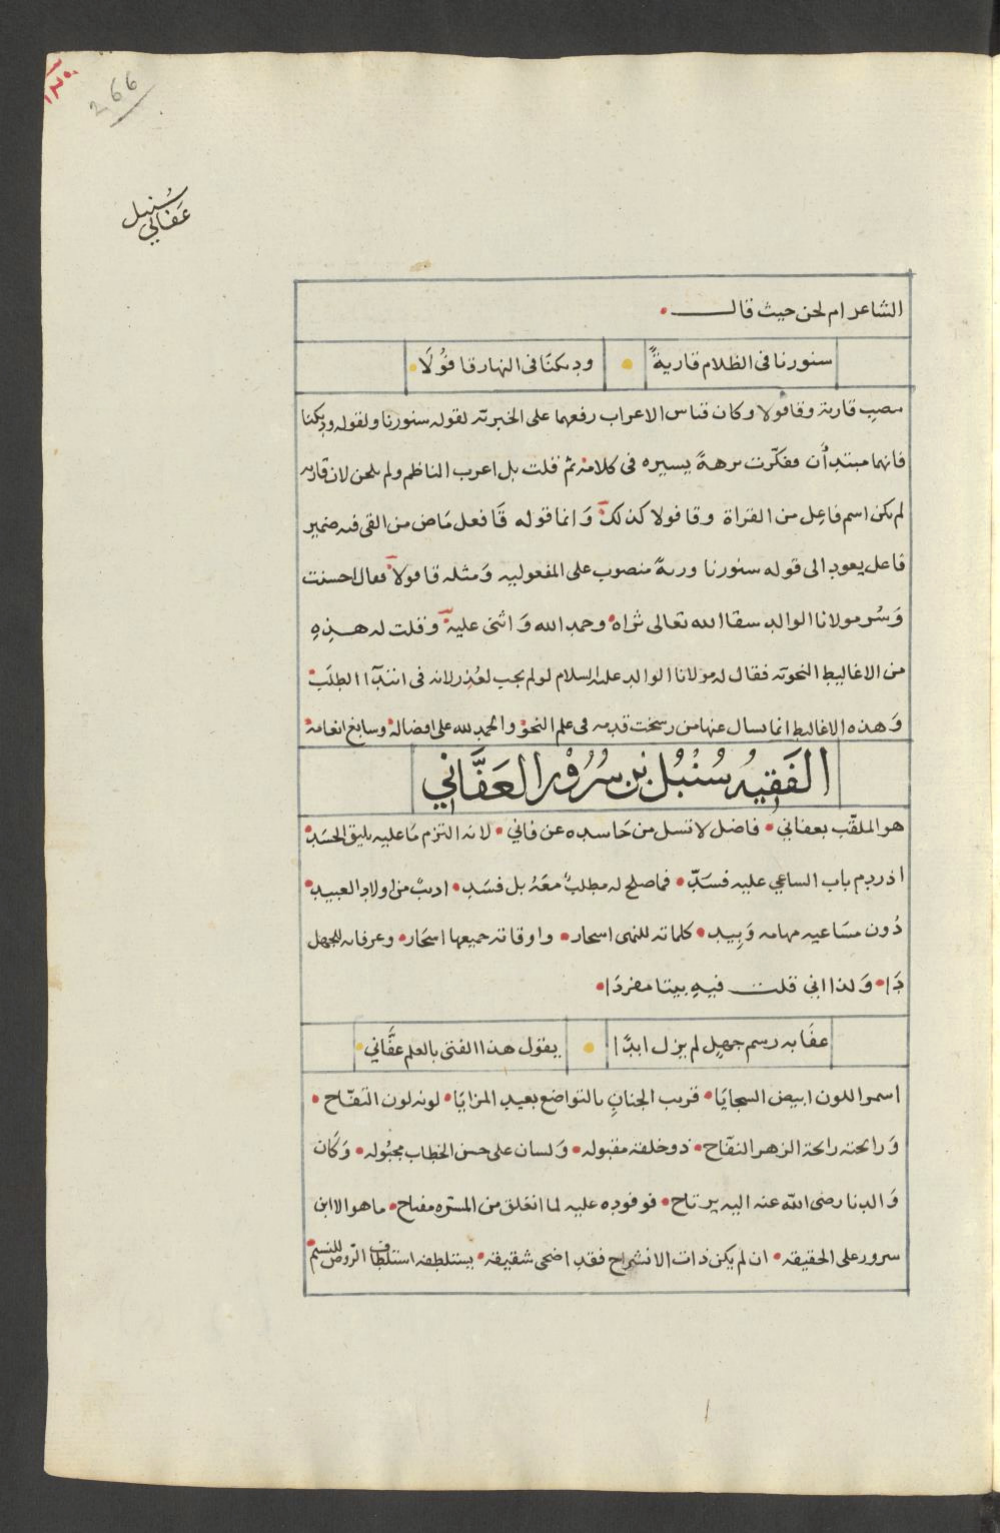 ١٣٠
266
سُنبل
عَفاني
الشاعر ام لحن حيث قال
سنورنا فى الظلام قاريةً ودىكنَا فى النهار قا فوُلَا
نصب قارية وقافولا وكان قياس الاعراب رفعهما على الخبرية لقوله سنورنا ولقوله وديكنا
فانهما مبتدأن ففكّرت برهةً يسيره فى كلامه ثم قلت بل اعرب الناظم ولم يلحن لان قاريه
لم يكن اسم فاعِل من القراة وقا فولا كذلك وَانما قوله قَا فعل مَاض من القى فيه ضمير
فاعل يعود الى قوله سنورنا وريةً منصوب على المفعوليه وَمثله قا فولاً فقال احسنت
وَسُر مولانا الوالد سقا الله تعالى ثراه وحمد الله وَاثنى عليه وقلت له هذهِ
من الاغاليط النحوية فقال له مولانا الوالد عليه السلام لو لم يجب لعُذر لانه فى ابتدآ الطلَب
وَهذه الاغاليط انما يسال عنها من رسخت قدمه فى علم النحو والحمد لله على افضاله وسابغ انعامه
الفَقِيهُ سُنْبُل بن سُرُوْر العَفَّانِي
هو الملقّب بعفاني فاضل لا تسل من حَاسده عن فاني لانه التزم مَا عليه يليق الحسَد
اذ ردم باب الساعي عليه فسَدّ فما صلح له مطلبٌ معَهُ بل فسَد اديبٌ من اولاد العبيد
دُون مسَاعيه مهامه وَبِيد كلماته للنهى اسحار واوقاته جميعها اسحَار وعرفانه للجهل
دَا وَلذا انى قلت فيهِ بيتا مفردَا
عفَا به رسم جهلٍ لم يزل ابدًا يقول هذا الفتى بالعلم عفَّاني
اسمر اللون ابيض السجايَا قريب الجنانِ بالتواضع بعيد المزايَا لونه لون التفّاح
وَرائحته رائحة الزهر النفّاح ذو خلقة مقبوله وَلسان على حسن الخطاب مجبُوله وَكَان
وَالدنا رضى الله عنه اليه يرتاح فوفوده عليه لما انغلق من المسرّه مفتاح ما هو الا ابن
سرور على الحقيقه ان لم يكن ذات الانشراح فقد اضحى شقيقه يستلطفه استلطاف الرّوض للنسيم